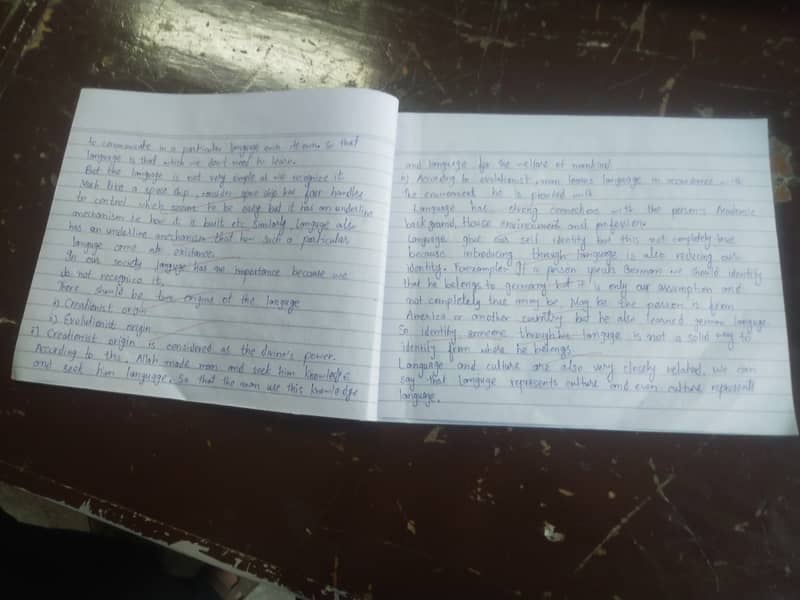 to communicate in a particular languge each it own. So that
language is that which we don't need to learn.
But the language is not very simple as we recognize it
Much like a space ship, consider space ship has four handles
to control which seems to be easy but it has an underline
mechanism i.e how it is built etc Similarly, language also
has an underline mechanism that how such a particular
languge came into existance.
In our society languge has no importance because we
do not recognize it.
There should be two origins of the languge
i) Creationist origin
ii) Evolutionist origin
i) Creationist origin is considered as the divine's power.
According to this, Allah made man and seek him knowledge
and seek him language. So that the man use this knowledge
and language for the welfare of mankind
ii) According to evolutionist, man learns language in accordance with
the environment he is provided with
Language has strong connections with the person's Academic
background, House environment and profession.
Language give our self identity but this not completely true
because introducing through language is also reducing our
identity. For example: If a person speaks German we should identify
that he belongs to germany but it is only our assumption and
not completely true may be. May be the person is from
America or another country but he also learned german language.
So identify someone through languge is not a solid way to
identify from where he belongs.
Language and culture are also very closely related. we can
say that languge represents culture and even culture represent
languge.